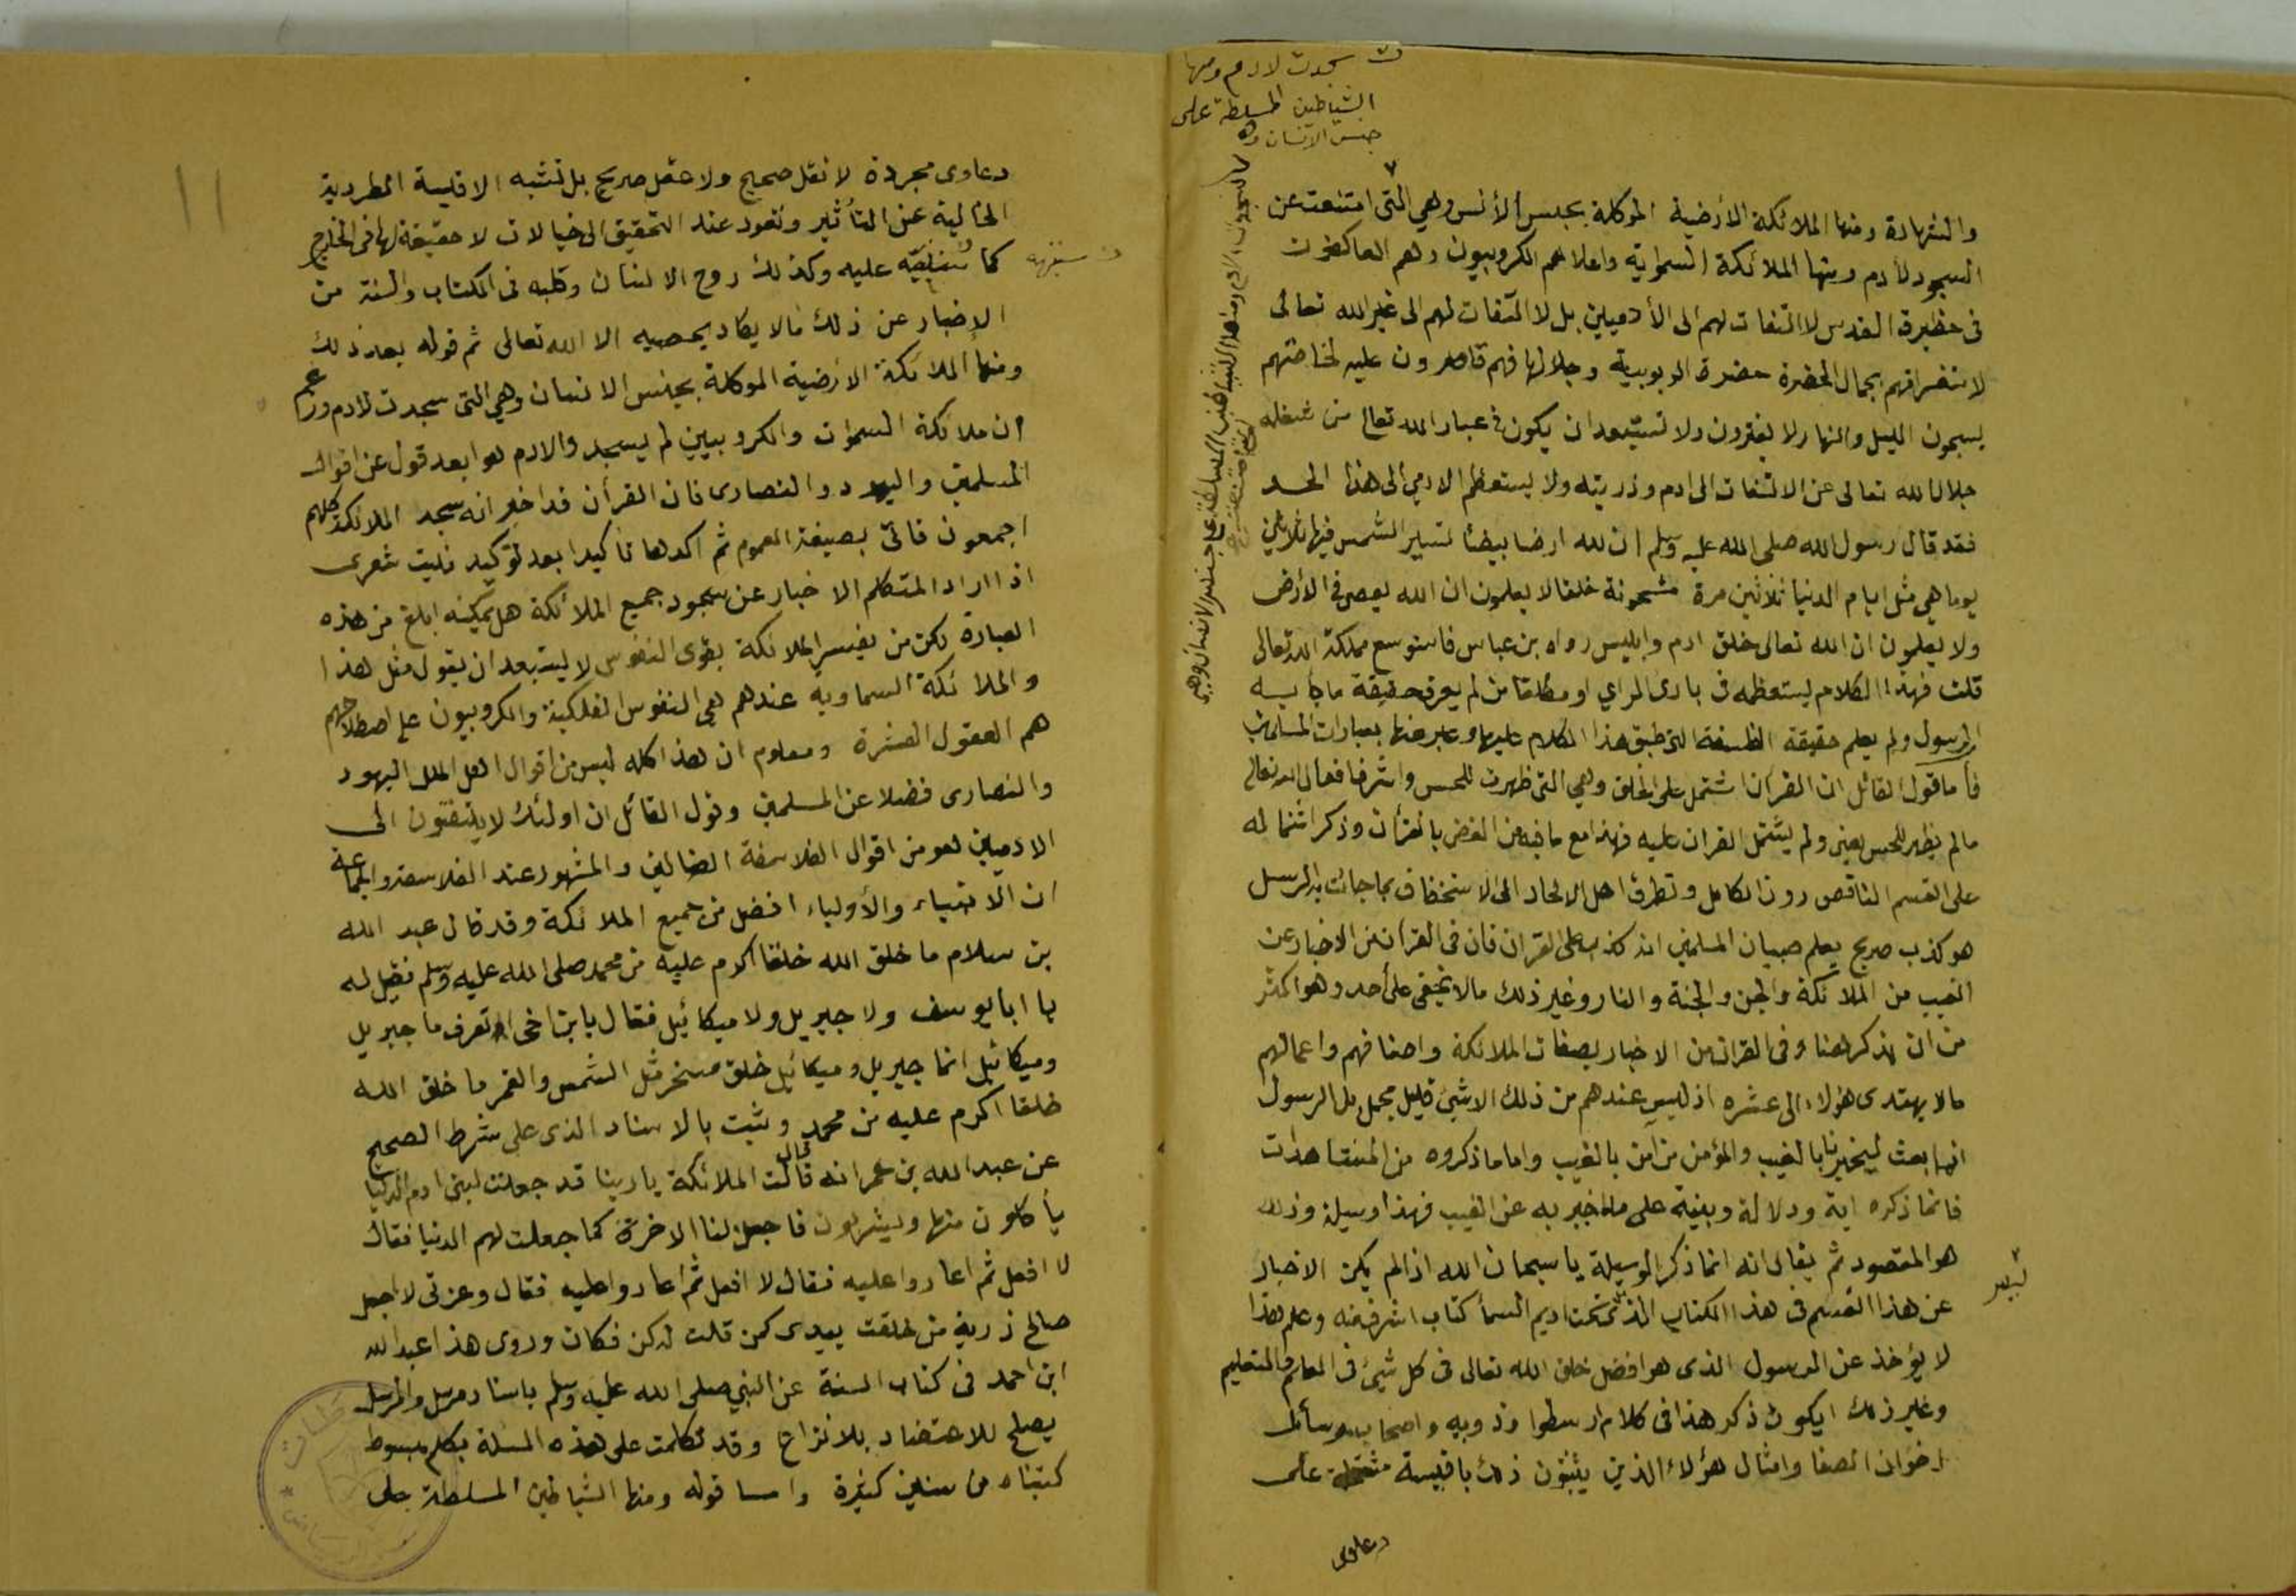 سجدت لادم ومنها
الشياطين المسلطة على
جنس الانسان وه
والشهادة ومنها الملائكة الأرضية الموكلة بجنس الأنس وهي التى امتنعت عن
السجود لأدم ومنها الملائكة السموايه واعلاهم الكروبيون وهم العاكفون
فى حظيرة القدس لا التفات لهم الى الأدميين بل لا التفات لهم الى غير الله تعالى
لاستغراقهم بجمال الحضرة حضرة الربوبية وجلالها فهم قاصرون عليه لحاضتهم
يسبحون الليل والنهار لا يفترون ولا تستبعد ان يكون فى عباد الله تعالى من شغله
جلال الله تعالى عن الالتفات الى ادم وذريته ولا يستعظم الادمي الى هذا الحد
فقد قال رسول الله صلى الله عليه وسلم ان لله ارضا بيضأ تسير الشمس فيها ثلاثين
يوما هي مثل ايام الدنيا ثلاثين مرة مشحونة خلقا لا يعلمون ان الله يعصى فى الأرض
ولا يعلمون ان الله تعالى خلق ادم وابليس رواه بن عباس فاستوسع مملكة الله تعالى
قلت فهذا الكلام يستعظمه فى بادى الراي او مطلقا من لم يعرف حقيقة ما جأ به
الرسول ولم يعلم حقيقة الفلسفة التى طبق هذا الكلام عليها وعبر عنها بعبارات المسلمين
فأما قول القائل ان القران اشتمل على الخلق وهي التى ظهرت للحس واشرف افعال الله تعالى
مالم يظهر للحس يعنى ولم يشتمل القران عليه فهذا مع ما فيه من الغض بالقرأن وذكر اشتماله
على القسم الناقص دون الكامل وتطرق اهل الالحاد الى الاستخفاف بما جائت به الرسل
هو كذب صريح يعلم صبيان المسلمين انه كذب على القران فان فى القران من الاخبار عن
الغيب من الملائكة والجن والجنة والنار وغير ذلك مالا يخفى على أحد وهو اكثر
من ان يذكر هنا وفى القران من الاخبار بصفات الملائكة واصنافهم واعمالهم
مالا يهتدى هؤلاء الى عشره اذ ليس عندهم من ذلك الا شئ قليل مجمل بل الرسول
انما بعث ليخبرنا بالغيب والمؤمن من آمن بالغيب واما ما ذكروه من المشاهدات
فانما ذكره اية ودلالة وبينة على ما اخبر به عن الغيب فهذا وسيلة وذلك
هو المقصود ثم يقال انه انما ذكر الوسيلة يا سبحان الله اذا لم يكن الاخبار
عن هذا القسم فى هذا الكتاب الذى تحت اديم السمأ كتاب اشرف منه وعلم هذا
لا يؤخذ عن الرسول الذى هو افضل خلق الله تعالى فى كل شئ فى العلم والتعليم
وغير ذلك ايكون ذكر هذا فى كلام ارسطوا وذويه واصحاب رسائل
اخوان الصفا وامثال هؤلاء الذين يثبتون ذلك باقيسة مشتملة على
دعاوى
١١
دعاوى مجردة لا نقل صحيح ولا عقل صريح بل تشبه الاقيسة الطردية
الخالية عن التأثير وتعود عند التحقيق الى خيالات لا حقيقة لها فى الخارج
كما سننبه عليه وكذلك روح الانسان وقلبه فى الكتاب والسنة من
الاخبار عن ذلك مالا يكاد يحصيه الا الله تعالى ثم قوله بعد ذلك
ومنها الملائكة الارضية الموكلة بجنس الانسان وهي التى سجدت لادم وزعم
ان ملائكة السموات والكروبيين لم يسجد والادم هو ابعد قول عن اقوال
المسلمين واليهود والنصارى فان القرأن قد اخبر انه سجد الملائكة كلهم
اجمعون فاتى بصيغة العموم ثم اكدها تاكيدا بعد توكيد فليت شعرى
اذا اراد المتكلم الاخبار عن سجود جميع الملائكة هل يمكنه ابلغ من هذه
العبارة لكن من يفسر الملائكة بقوى النفوس لا يستبعد ان يقول مثل هذا
والملائكة السماويه عندهم هي النفوس الفلكية والكروبيون على اصطلاحهم
هم العقول العشرة ومعلوم ان هذا كله ليس من اقوال اهل الملل اليهود
والنصارى فضلا عن المسلمين وقول القائل ان اولئك لا يلتفتون الى
الادميين هو من اقوال الفلاسفة الضالين والمشهور عند الفلاسفة والجماعة
ان الانبياء والأولياء افضل من جميع الملائكة وقد قال عبد الله
بن سلام ما خلق الله خلقا اكرم عليه من محمد صلى الله عليه وسلم فقيل له
يا ابا يوسف ولا جبريل ولا ميكائيل فقال يا بن اخى او تعرف ما جبريل
وميكائيل انما جبريل وميكائيل خلق مسخر مثل الشمس والقمر ما خلق الله
خلقا اكرم عليه من محمد وثبت بالاسناد الذى على شرط الصحيح
عن عبد الله بن عمر انه قال قالت الملائكة يا ربنا قد جعلت لبنى ادم الدنيا
يأكلون منها ويشربون فاجعل لنا الاخرة كما جعلت لهم الدنيا فقال
لا افعل ثم اعادوا عليه فقال لا افعل ثم اعادوا عليه فقال وعزتى لا اجعل
صالح ذرية من خلقت بيدى كمن قلت له كن فكان وروى هذا عبد الله
ابن احمد فى كتاب السنة عن النبي صلى الله عليه وسلم باسناد مرسل والمرسل
يصلح للاعتضاد بلا نزاع وقد تكلمت على هذه المسئلة بكلام مبسوط
كتبناه من سنين كثيرة واما قوله ومنها الشياطين المسلطة على